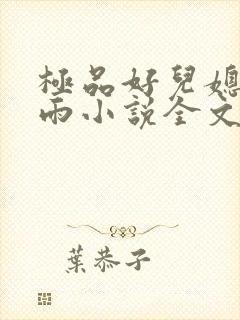 極品好兒媳
雨小說全文
葉恭子